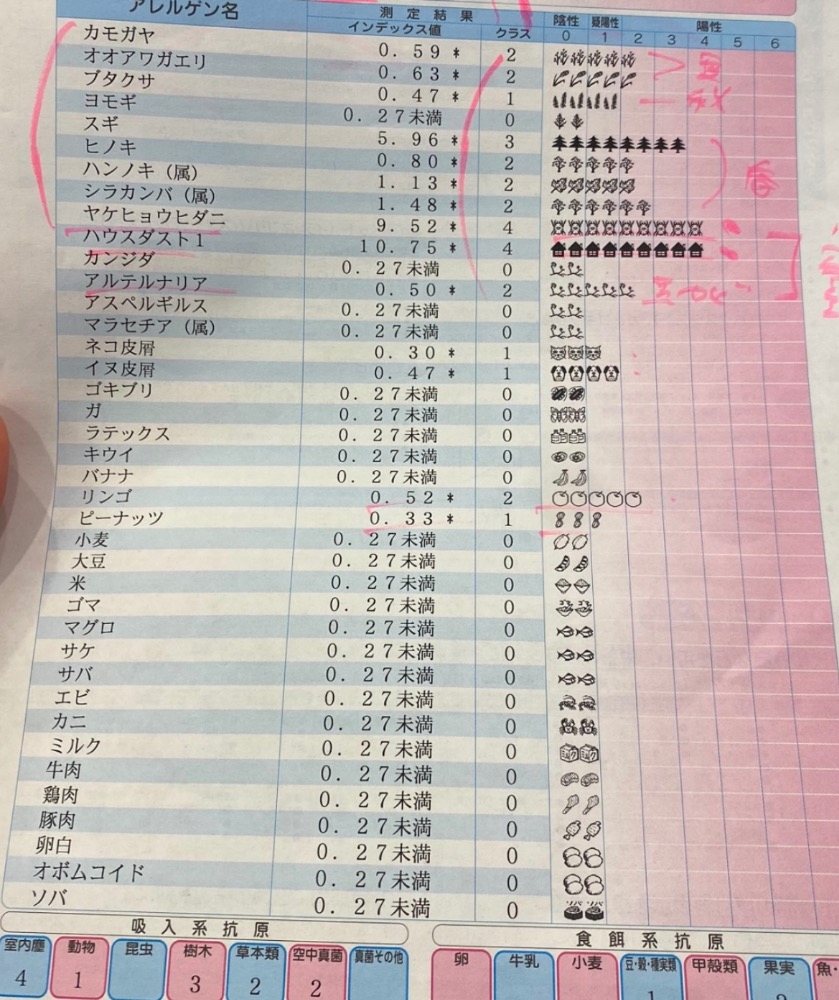 アレルゲン名 測定結果
インデックス値 クラス 陰性 疑陽性 陽性
0 1 2 3 4 5 6
カモガヤ 0.59 * 2
オオアワガエリ 0.63 * 2
ブタクサ 0.47 * 1
ヨモギ 0.27未満 0
スギ 5.96 * 3
ヒノキ 0.80 * 2
ハンノキ（属） 1.13 * 2
シラカンバ（属） 1.48 * 2
春
ヤケヒョウヒダニ 9.52 * 4
ハウスダスト1 10.75 * 4
カンジダ 0.27未満 0
アルテルナリア 0.50 * 2
アスペルギルス 0.27未満 0
マラセチア（属） 0.27未満 0
ネコ皮屑 0.30 * 1
イヌ皮屑 0.47 * 1
ゴキブリ 0.27未満 0
ガ 0.27未満 0
ラテックス 0.27未満 0
キウイ 0.27未満 0
バナナ 0.27未満 0
リンゴ 0.52 * 2
ピーナッツ 0.33 * 1
小麦 0.27未満 0
大豆 0.27未満 0
米 0.27未満 0
ゴマ 0.27未満 0
マグロ 0.27未満 0
サケ 0.27未満 0
サバ 0.27未満 0
エビ 0.27未満 0
カニ 0.27未満 0
ミルク 0.27未満 0
牛肉 0.27未満 0
鶏肉 0.27未満 0
豚肉 0.27未満 0
卵白 0.27未満 0
オボムコイド 0.27未満 0
ソバ 0.27未満 0
吸入系抗原 食餌系抗原
室内塵 動物 昆虫 樹木 草本類 空中真菌 真菌その他 卵 牛乳 小麦 豆・穀・種実類 甲殻類 果実 魚・
4 1 3 2 2 1